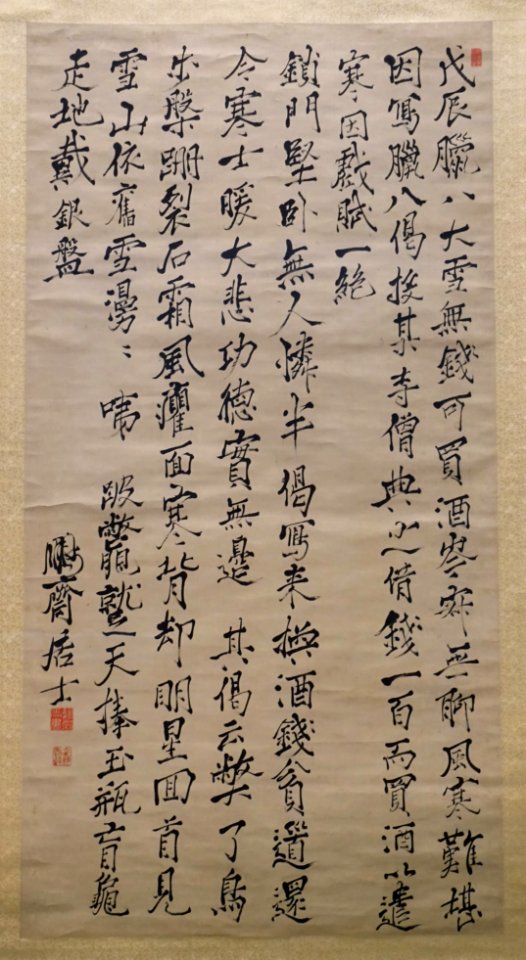 戊辰臘八大雪無錢可買酒岑寂無聊風寒難堪
因寫臘八偈挨某寺僧典之借錢一百而買酒以遣
寒因戲賦一絶
鎖門堅卧無人憐半偈寫来換酒錢貧道還
令寒士暖大悲功德實無邊 其偈云弊了鳥
出槃跚裂石霜風癯面寒背却明星回首見
雪山依舊雪漫〻 啼 跛鱉鼋就天捧玉瓶盲龜
走地戴銀盤
齋居士